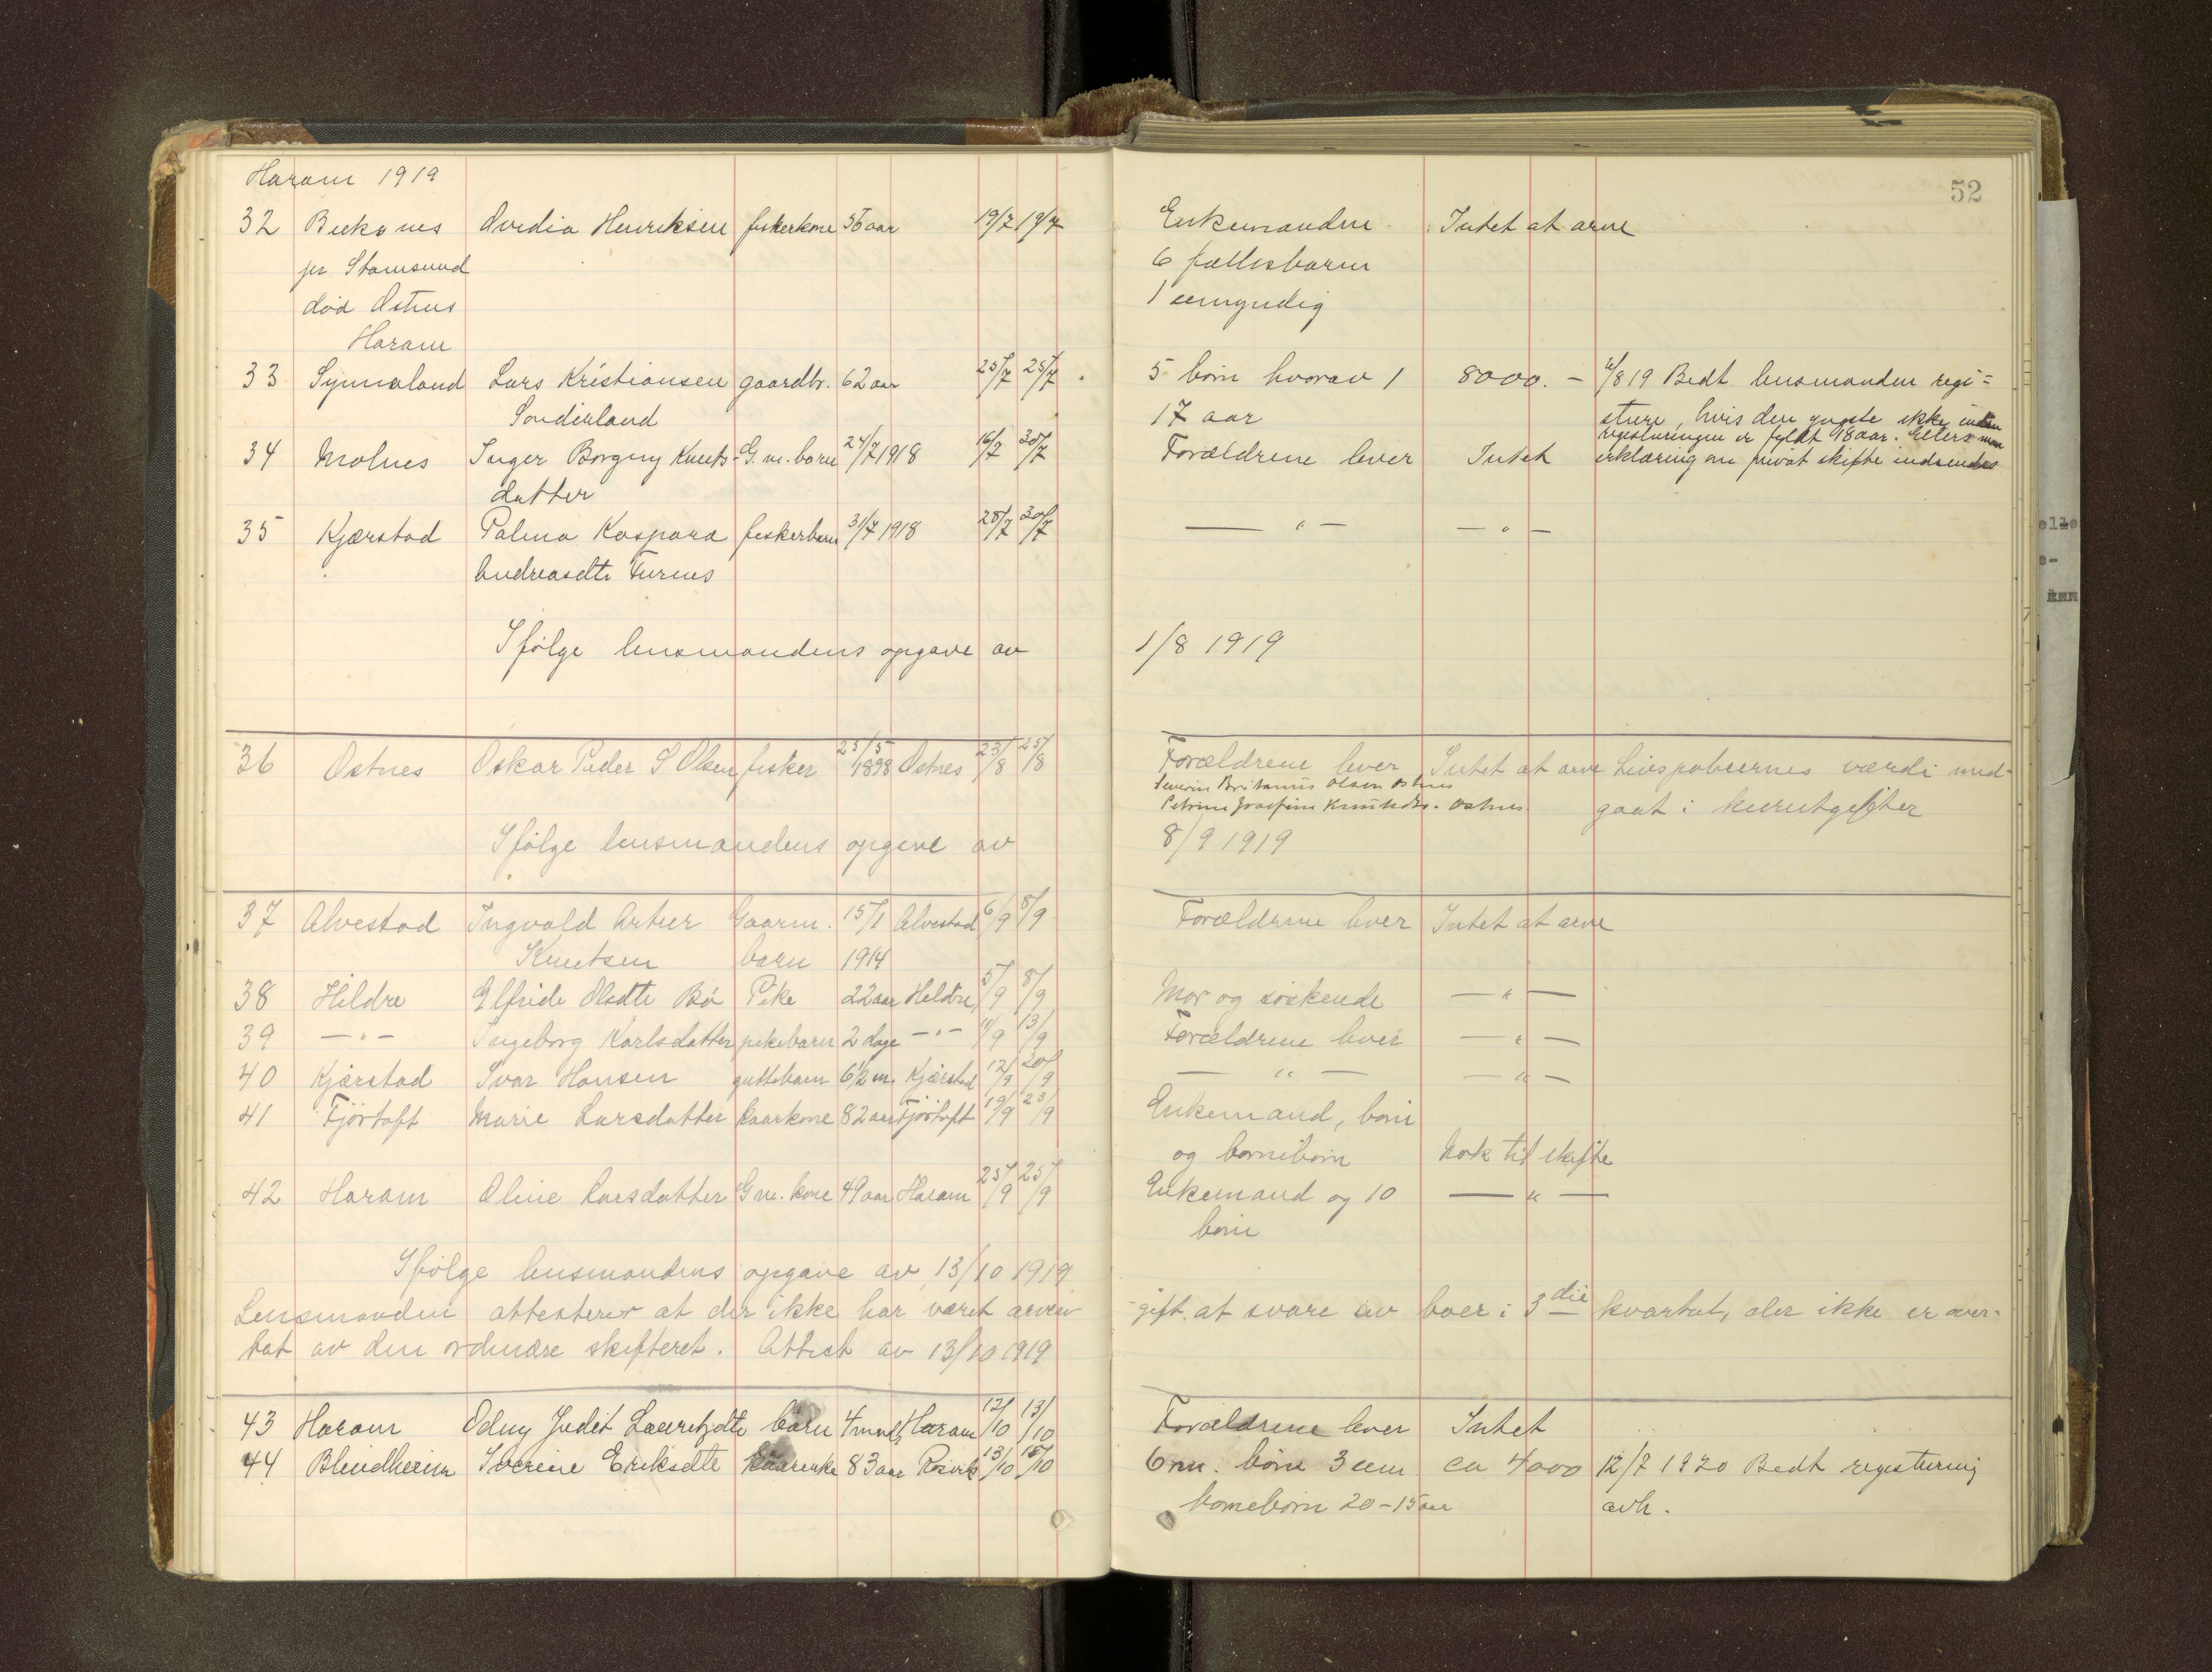 52
Haram 1919
32 Ovidia Henriksen fiskerkone 56 aar 19/7 19/7 Enkemanden Intet at arve
pr Stamsund 6 fællesbarn
død Østnes 1 umyndig
Haram
33 Synnaland Lars Kristiansen gaardbr. 62 aar 25/7 25/7 5 børn hvorav 1 8000. – /8 19 Bedt lensmanden regi=
Sønderland 17 aar strere, hvis den yngste ikke inden
registreringen er fyldt 18 aar. Ellers maa
34 Molnes Inger Borgny Knuts- G. m. barn 24/7 1918 16/7 30/7 Forældrene lever Intet erklæring om privat skifte indsendes
datter
35 Kjærstad Palma Kaspara fiskerbarn 31/7 1918 28/7 30/7 — " — — " —
Andreasdtr Furnes
Ifølge lensmandens opgave av 1/8 1919
36 Østnes Oskar Peder S Olsen fisker 25/5 1898 Østnes 23/8 25/8 Forældrene lever Intet at arve Livspolicernes værdi med-
Severin Britanius Olsen Østnes
Petrine Josefine Knutsdtr. Østnes gaat i kurutgifter
Ifølge lensmandens opgave av 8/9 1919
37 Alvestad Ingvald Artur Gaarm. 15/1 Alvestad 6/9 8/9 Forældrene lever Intet at arve
Knutsen barn 1914
38 Hildre Elfride Olsdtr Bø Pike 22 aar Hildre 5/9 8/9 Mor og søskende — " —
39 — " — Ingeborg Karlsdatter pikebarn 2 dage — " — 11/9 13/9 Forældrene lever — " —
40 Kjærstad Ivar Hansen guttebarn 6½ m. Kjærstad 12/9 20/9 — " — — " —
41 Fjørtoft Marie Larsdatter kaarkone 82 aar Fjørtoft 19/9 23/9 Enkemand, børn
og børnebørn Nok til skifte
42 Haram Oline Larsdatter G m. kone 49 aar Haram 25/9 25/9 Enkemand og 10 — " —
børn
Ifølge lensmandens opgave av 13/10 1919
Lensmanden attesterer at der ikke har været arveav-gift at svare av boer i 3die kvartal, der ikke er over-
tat av den ordinære skifteret. Attest av 13/10 1919
43 Haram Odny Judit Lauritzdtr barn 4 mndr Haram 12/10 13/10 Forældrene lever Intet
44 Blindheim Iverine Eriksdtr kaarenke 83 aar Røsvik 13/10 15/10 6 m. børn 3 um ca 4000 12/7 1920 Bedt registrering
børnebørn 20-15 aar avh.